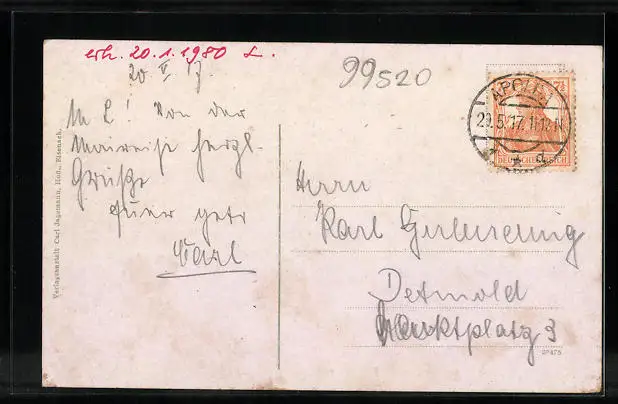 erh. 20.1.1980 L.
99520
20 V 17.
M L! Von der
Maireise herzl.
Grüße
Euer getr
Carl
Herrn
Karl
Detmold
Marktplatz 3
APOLDA
20.5.17. 11-12 V
* d
7½
DEUTSCHES REICH
Verlagsanstalt Carl Jagemann, Hofl., Eisenach.